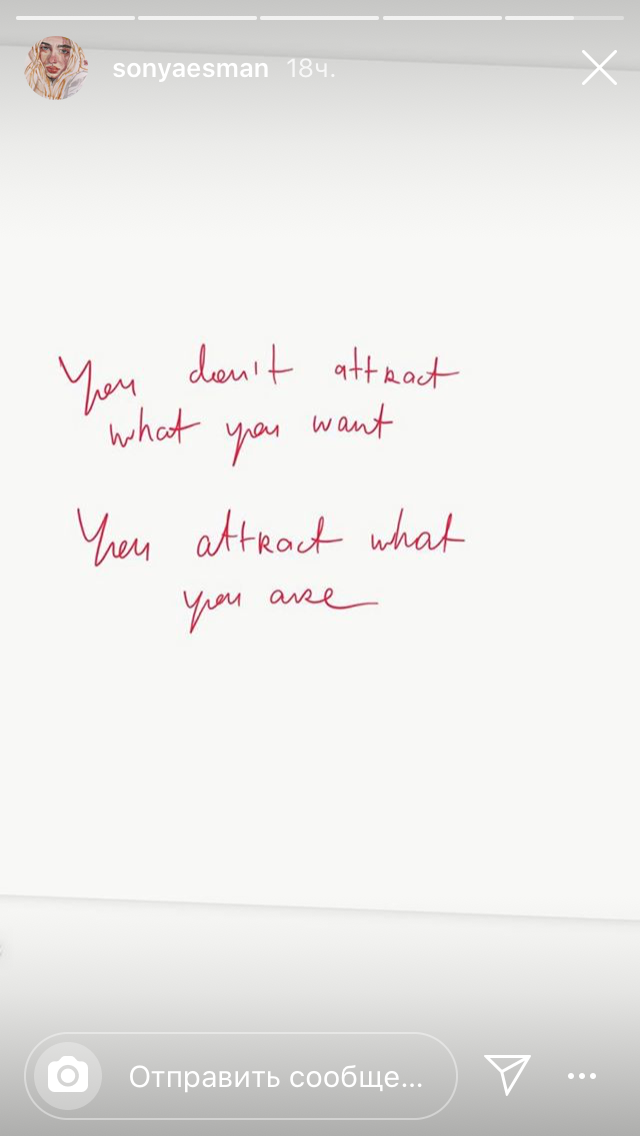 sonyaesman 18ч.
You don't attract
what you want
You attract what
you are
Отправить сообще...